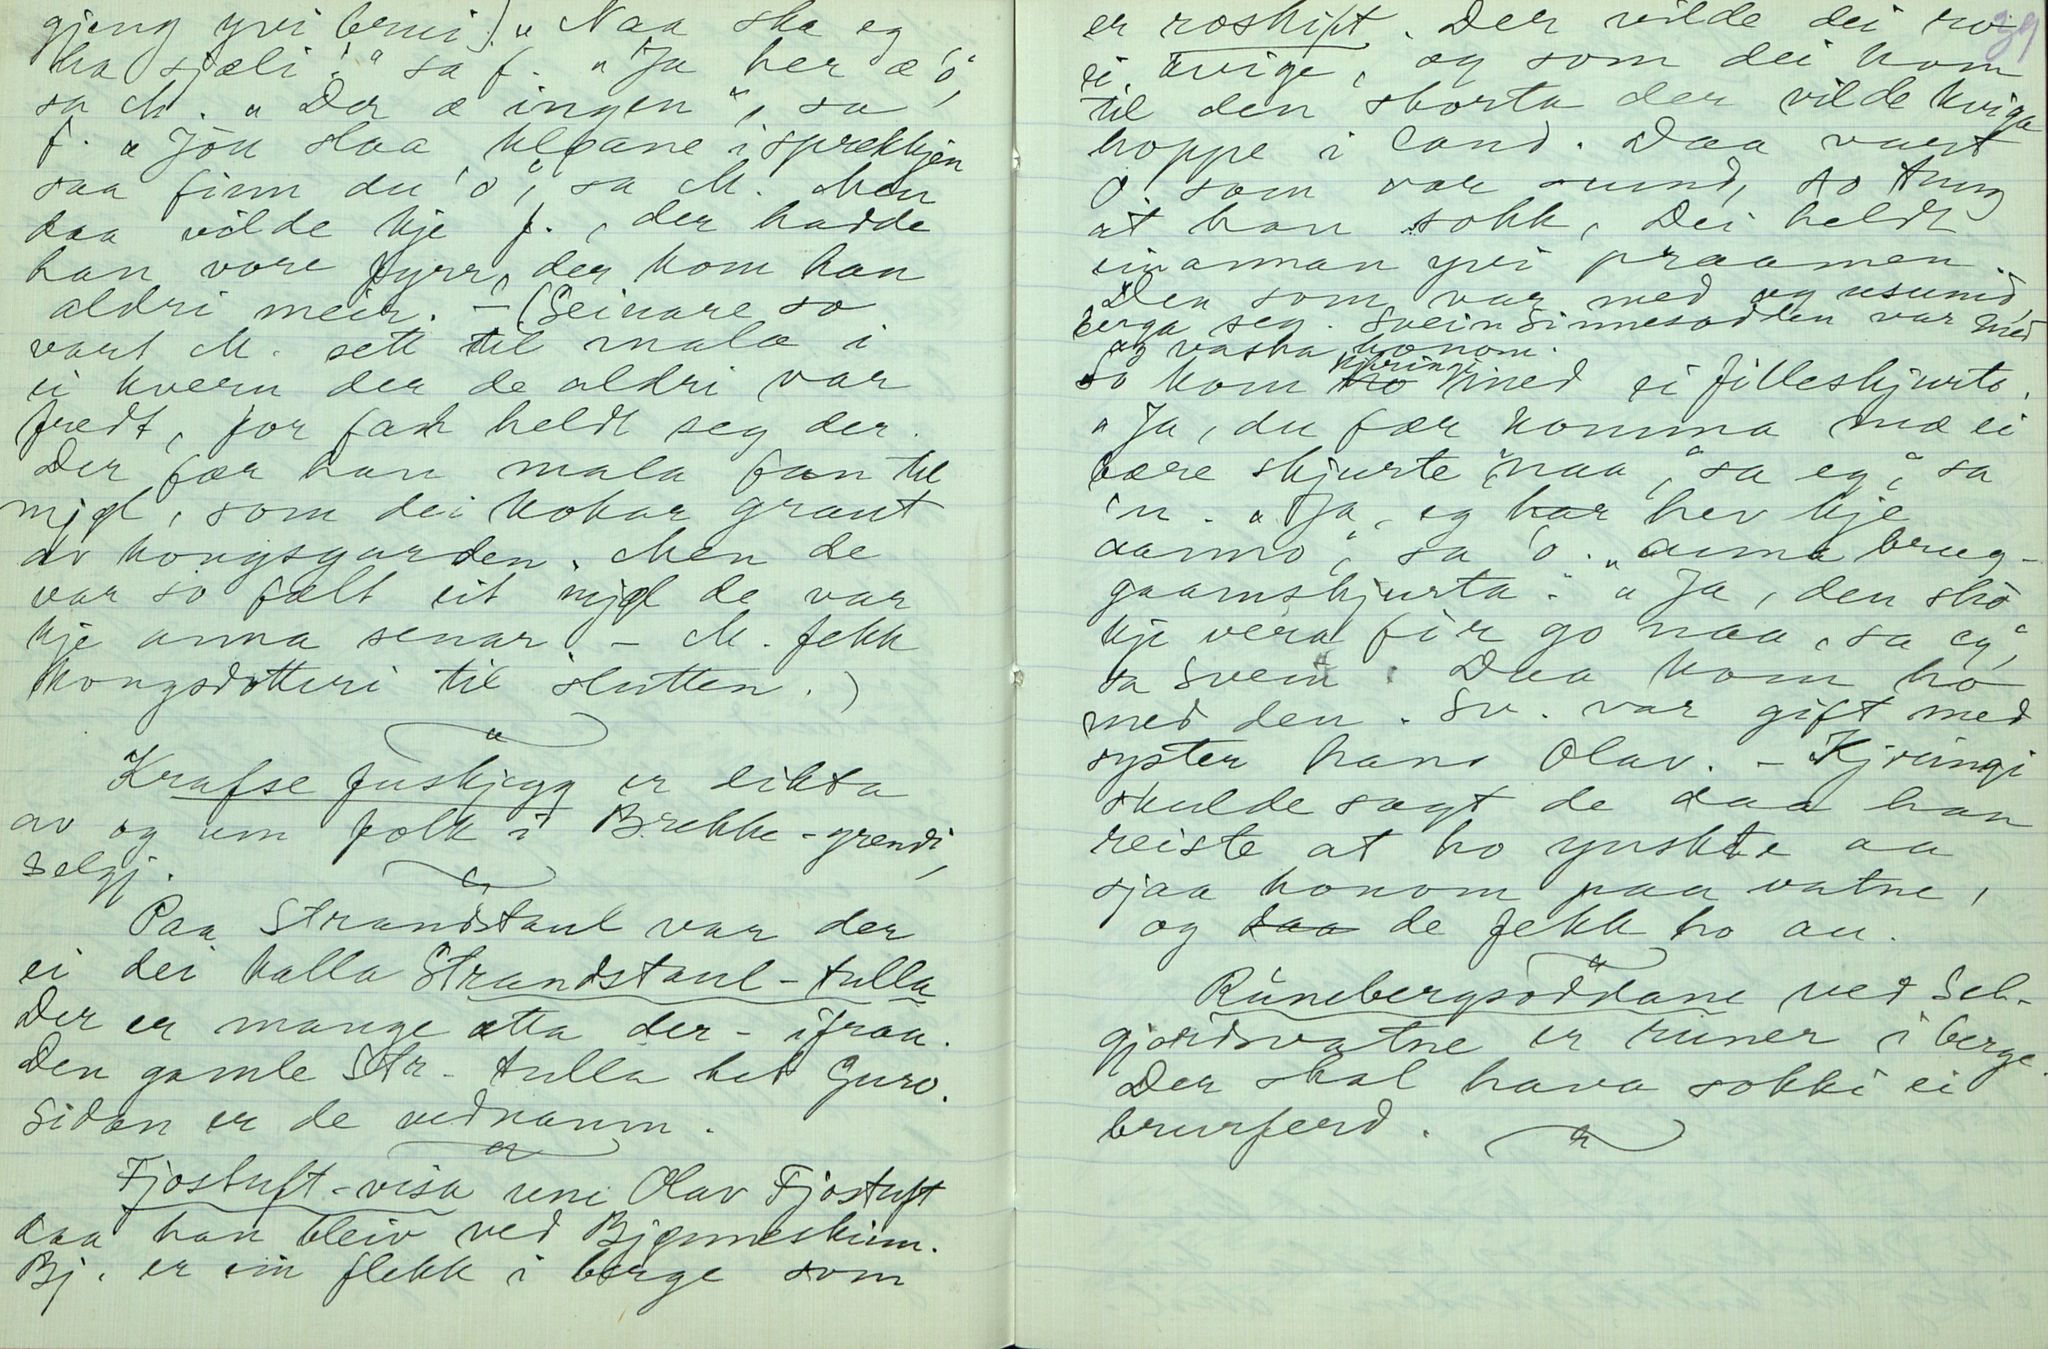 gjeng yvi brui]. „Naa ska eg
ha sjæli!" sa f. „Ja her æ 'o",
sa M. „Der æ ingen", sa
f. „Jou slaa kloane i sprekkjen
saa finn du 'o", sa M. Men
daa vilde kje f., der hadde
han vore fyrr, der kom han
aldri meir. – (Seinare so
vart M. sett til mala i
ei kvern der de aldri var
fredt, for fan heldt seg der.
Der fær han mala fan til
mjøl, som dei kokar graut
av kongsgarden. Men de
var so fælt eit mjøl de var
kje anna senar. – M. fekk
kongsdotteri til slutten.)
Krafse Fuskjegg er dikta
av og um folk i Brekke-grendi,
Selgj.
Paa Strandstaul var der
ei dei kalla Strandstaul-tulla
Der er mange ætta der-ifraa.
Den gamle Str-tulla het Guro.
Sidan er de vednamn.
Fjostuft-visa um Olav Fjostuft
daa han bleiv ved Bjønneskinn.
Bj. er ein flekk i berge som
39
er roskift. Der vilde dei ro
ei kvige, og som dei kom
til den skorta der vilde kviga
hoppe i land. Daa vart
O. som var sund, so tung
at han sokk, Dei heldt
einannan yvi praamen.
Den som var med og usund,
berga seg. Svein Sinnesodden var med
og vaska honom.
So kom ho kjeringi med ei filleskjurte.
„Ja, du fær komma mæ ei
bære skjurte naa", sa eg", sa
'n. „Ja, eg har hev kje
aanno", sa 'o. „anna brug-
gaamskjurta". „Ja, den sko
kje vera fir go naa, sa eg",
sa Svein. Daa kom ho
med den. Sv. var gift med
syster hans Olav. – Kjeringi
skulde sagt de daa han
reiste at ho ynskte aa
sjaa honom paa vatne,
og daa de fekk ho au.
Rúnebergsoddane ved Sel-
gjordsvatne er runer i berge.
Der skal hava sokki ei
brurferd.